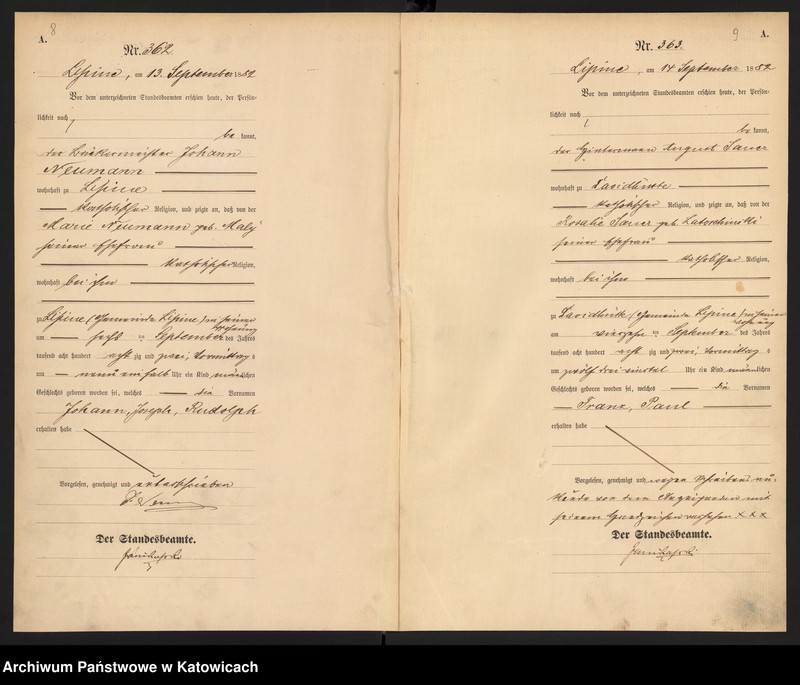 8
A.
Nr. 362
Lipine, am 13. September 1882
Vor dem unterzeichneten Standesbeamten erschien heute, der Persön-
lichkeit nach
be kannt,
der Bäckermeister Johann
Neumann
wohnhaft zu Lipine
katholischer Religion, und zeigte an, daß von der
Marie Neumann geb. Maly
seiner Ehefrau
katholischer Religion,
wohnhaft bei ihm
zu Lipine (Gemeinde Lipine) in seiner
Wohnung
am sechs ten September des Jahres
tausend acht hundert acht zig und zwei, Vormittag s
um neun einhalb Uhr ein Kind männlichen
Geschlechts geboren worden sei, welches die Vornamen
Johann, Joseph, Rudolph
erhalten habe
Vorgelesen, genehmigt und unterschrieben
Der Standesbeamte.
9
A.
Nr. 363.
Lipine, am 14 September 1882
Vor dem unterzeichneten Standesbeamten erschien heute, der Persön-
lichkeit nach
be kannt,
der August Sauer
wohnhaft zu Davidhütte
katholischer Religion, und zeigte an, daß von der
Rosalie Sauer geb.
seiner Ehefrau
katholischer Religion,
wohnhaft bei ihm
zu Davidhütte (Gemeinde Lipine) in seiner
Wohnung
am vierzehn ten September des Jahres
tausend acht hundert acht zig und zwei, Vormittag s
um zwölf drei viertel Uhr ein Kind männlichen
Geschlechts geboren worden sei, welches die Vornamen
Franz, Paul
erhalten habe
Vorgelesen, genehmigt und wegen Schreibens un-
kunde von dem Anzeigenden mit
seinem Handzeichen versehen xxx
Der Standesbeamte.
Archiwum Państwowe w Katowicach